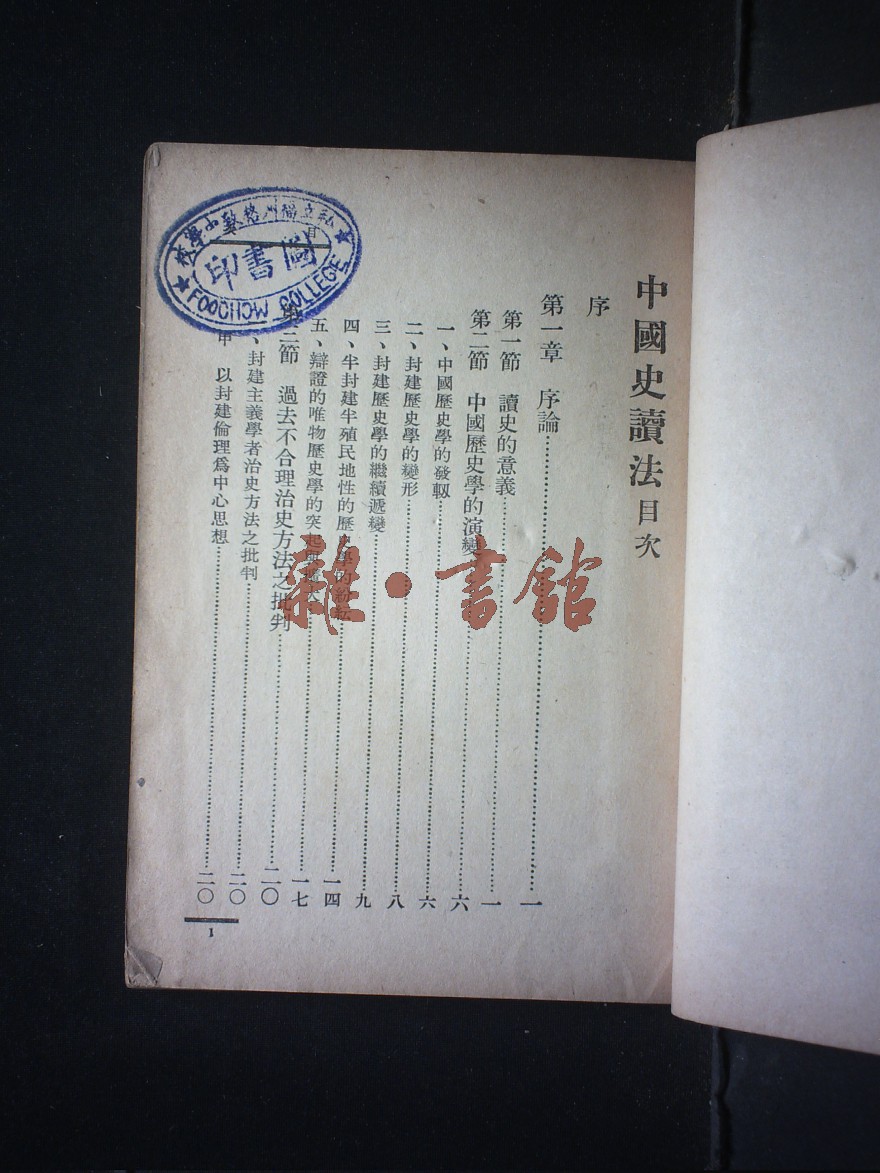 中國史讀法目次
序
第一章 序論…………一
第一節 讀史的意義…………一
第二節 中國歷史學的演變…………六
一、中國歷史學的發軔…………六
二、封建歷史學的變形…………八
三、封建歷史學的繼續遞變…………九
四、半封建半殖民地性的歷史學的…………一四
五、辯證的唯物歷史學的突起…………一七
第三節 過去不合理治史方法之批判…………二〇
、封建主義學者治史方法之批判…………二〇
甲 以封建倫理爲中心思想…………二〇
1
目
私立福州格致中學校
圖書印
FOOCHOW COLLEGE
雜·書館